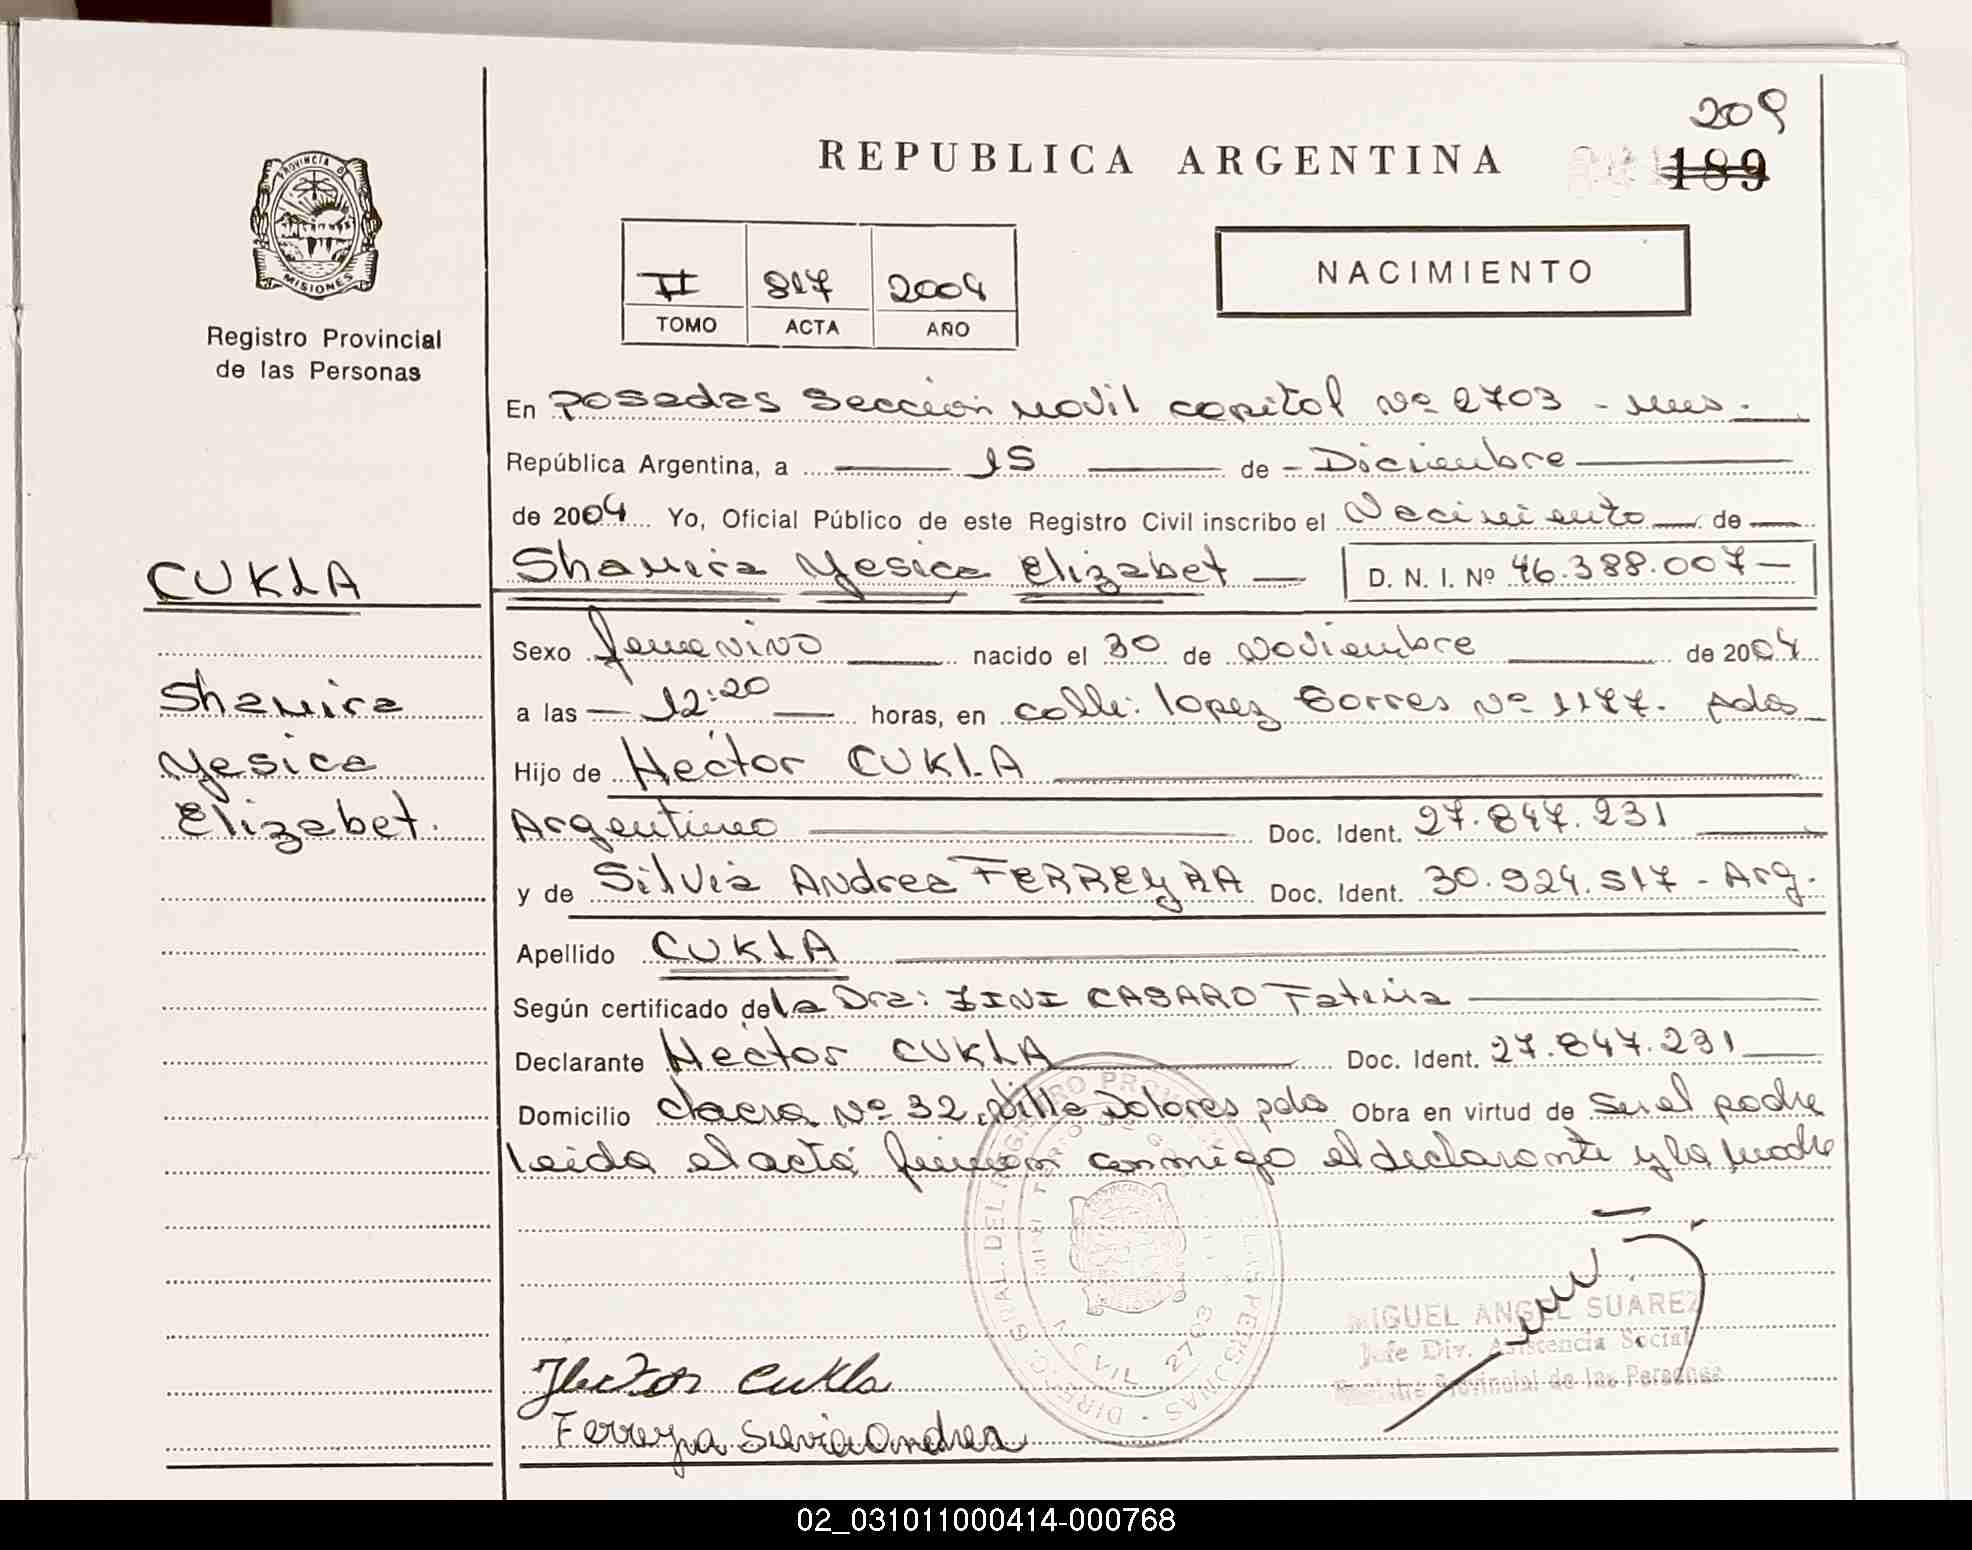 209
REPUBLICA ARGENTINA 189
PROVINCIA DE
MISIONES
Registro Provincial
de las Personas
II 817 2004
TOMO ACTA AÑO
NACIMIENTO
En Posadas Sección Movil capital Nº 2703 - Mns.
República Argentina, a 15 de Diciembre
de 2004 Yo, Oficial Público de este Registro Civil inscribo el Nacimiento de
CUKLA
Shamira Yesica Elizabet D. N. I. Nº 46.388.007
Sexo femenino nacido el 30 de Noviembre de 2004
Shamira
Yesica
Elizabet.
a las 12:20 horas, en calle: lopez torres Nº 1177. pdas
Hijo de Hector CUKLA
Argentino Doc. Ident. 27.847.231
y de Silvia Andrea FERREYRA Doc. Ident. 30.924.517 - Arg.
Apellido CUKLA
Según certificado de la Dra: ZINI CASARO Fatima
Declarante Hector CUKLA Doc. Ident. 27.847.231
Domicilio chacra Nº 32, Villa Dolores pdas Obra en virtud de ser el padre
Leida el acta firman conmigo el declarante y la madre
MIGUEL ANGEL SUAREZ
Jefe Div. Asistencia Social
Registro Provincial de las Personas
Hector Cukla
Ferreyra Silvia Andrea
02_031011000414-000768